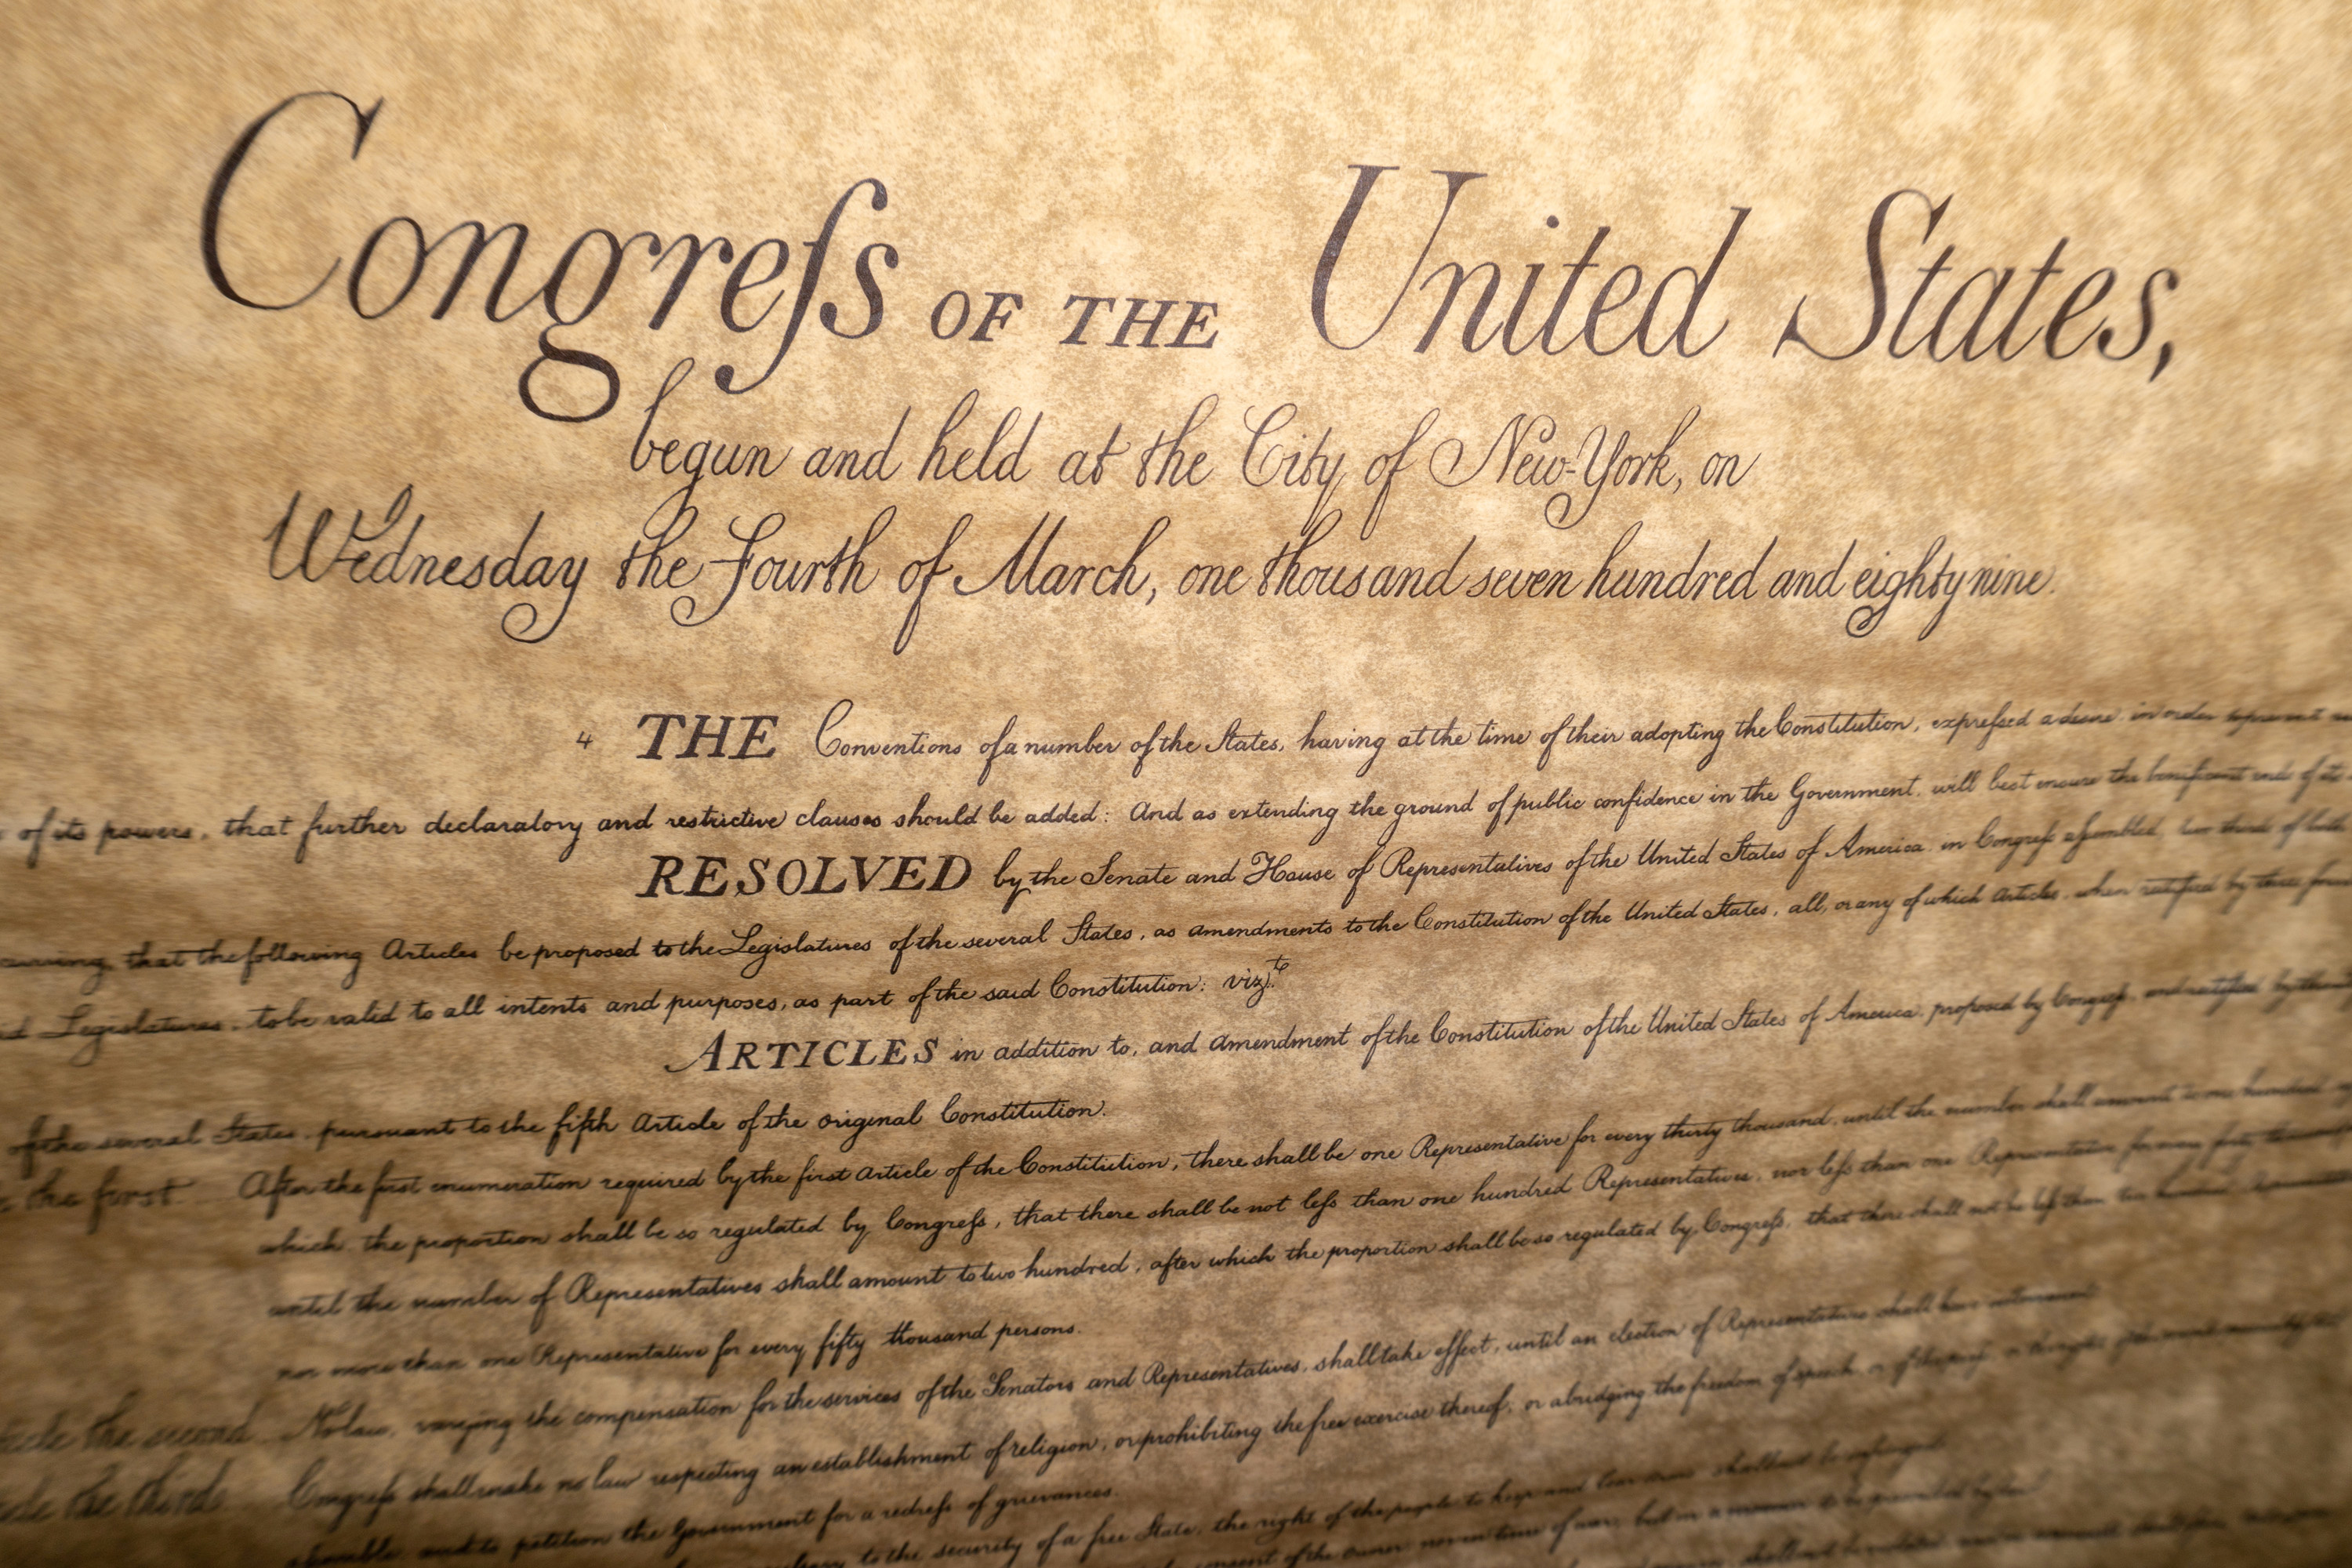 Congreſs OF THE United States,
begun and held at the City of New-York, on
Wednesday the Fourth of March, one thousand seven hundred and eighty nine.
4 THE Conventions of a number of the States, having at the time of their adopting the Constitution, expreſsed a desire, in order
of its powers, that further declaratory and restrictive clauses should be added: And as extending the ground of public confidence in the Government, will best ensure the beneficent ends of its
RESOLVED by the Senate and House of Representatives of the United States of America, in Congreſs aſsembled, two thirds of both
that the following Articles be proposed to the Legislatures of the several States, as amendments to the Constitution of the United States, all, or any of which Articles, when ratified by three
Legislatures, to be valid to all intents and purposes, as part of the said Constitution: vizt.
ARTICLES in addition to, and amendment of the Constitution of the United States of America, proposed by Congreſs, and ratified by the
of the several States, pursuant to the fifth Article of the original Constitution.
the first. After the first enumeration required by the first Article of the Constitution, there shall be one Representative for every thirty thousand, until the number shall amount to one hundred
which, the proportion shall be so regulated by Congreſs, that there shall be not leſs than one hundred Representatives, nor leſs than one Representative for every forty thousand
until the number of Representatives shall amount to two hundred, after which the proportion shall be so regulated by Congreſs, that there shall not be leſs than two hundred
nor more than one Representative for every fifty thousand persons.
the second No law, varying the compensation for the services of the Senators and Representatives, shall take effect, until an election of Representatives shall have intervened.
the third Congreſs shall make no law respecting an establishment of religion, or prohibiting the free exercise thereof; or abridging the freedom of speech, or of the press
and to petition the Government for a redreſs of grievances.
to the security of a free State, the right of the people to keep and bear arms, shall not be infringed.
consent of the owner, nor in time of war, but in a manner to be prescribed by law.